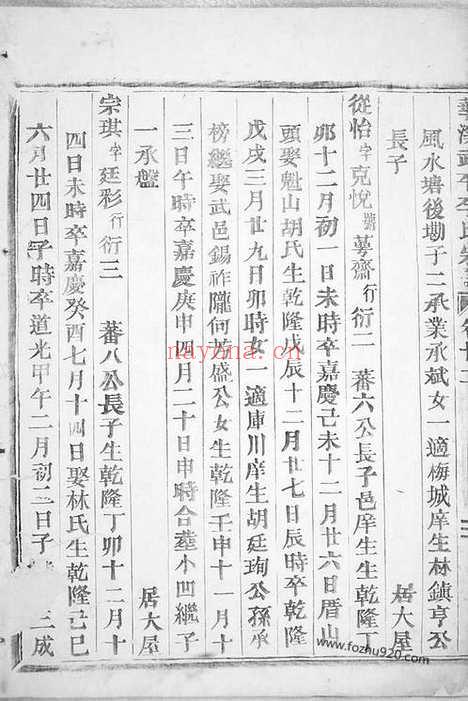 風水塘後勘子二承業承斌女一適梅城庠生林鎮亨公
長子 居大屋
從怡字克悅號萼齋行衍二 蕃六公長子邑庠生生乾隆丁
卯十二月初一日未時卒嘉慶己未十二月廿六日厝山
頭娶魁山胡氏生乾隆戊辰十二月廿七日辰時卒乾隆
戊戌三月廿九日卯時女一適庫川庠生胡廷珣公孫承
榜繼娶武邑錫祚隴何芳盛公女生乾隆壬申十一月十
三日午時卒嘉慶庚申四月二十日申時合葬小凹繼子
一承盤 居大屋
宗琪字廷彩行衍三 蕃八公長子生乾隆丁卯十二月十
四日未時卒嘉慶癸酉七月十四日娶林氏生乾隆己巳
六月廿四日子時卒道光甲午二月初二日子 三成
nayona.cn
www.fozhu920.com